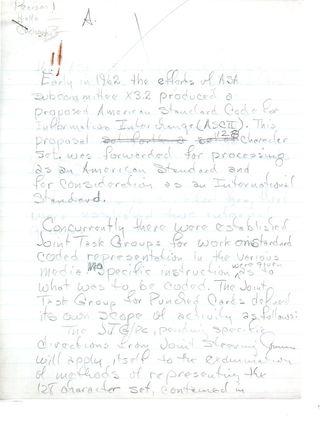 A.
11
Early in 1962 the efforts of ASA
subcommittee X3.2 produced a
proposed American Standard Code for
Information Interchange (ASCII). This
proposal 128 character
set. was forwarded for processing
as an American Standard and
for consideration as an International
Standard.
Concurrently there were established
Joint Task Groups for work on standard
coded representation in the various
media. No specific instruction were given as to
what was to be coded. The Joint
Task Group for Punched Cards defined
its own scope of activity as follows:
The JTG/PC, pending specific
directions from Joint Steering
will apply itself to the examination
of methods of representing the
128 character set, contained in